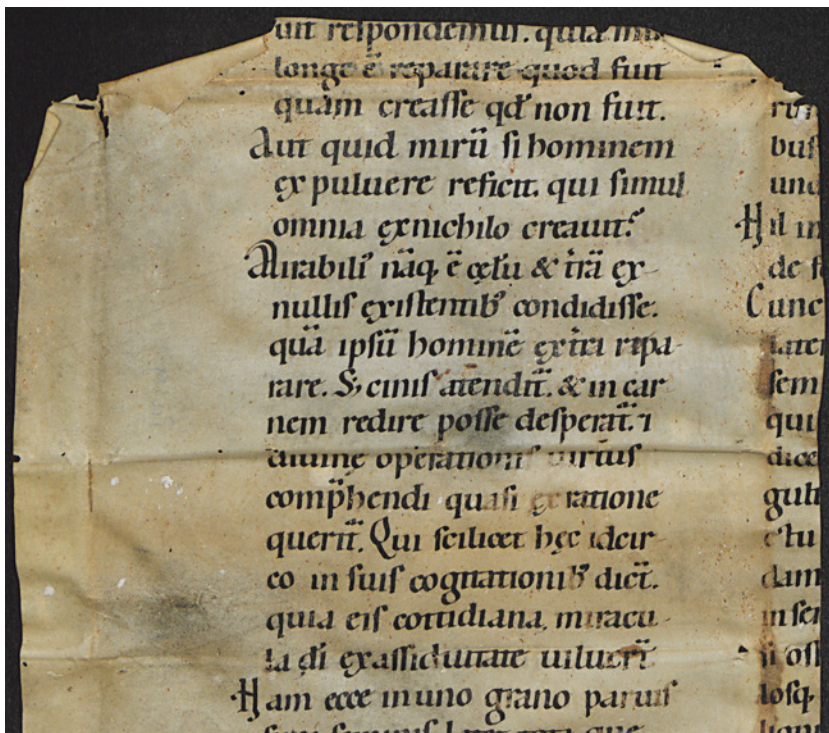 uit respondemus. quia mi
longe ē reparare quod fuit
quam creasse qd' non fuit.
Aut quid mirū si hominem
ex puluere reficit. qui simul
omnia exnichilo creauit?
Mirabili' nāq; ē cęlū & trā ex
nullis existentib' condidisse.
quā ipsū hominē ex trā repa
rare. S; cinis atendit̄. & in car
nem redire posse desperat̄. ⁊
diuine operationis uirtus
comp̄hendi quasi ex ratione
querit̄. Qui scilicet hęc idcir
co in suis cogitationib' dic̄t.
quia eis cottidiana miracu
la dī ex assiduitate uiluer̄t
Nam ecce in uno grano paruis
rum
bus
und
Nil in
de s
Cunc
later
sem
qui
dice
gul
etu
dam
in ser
si oss
losq;